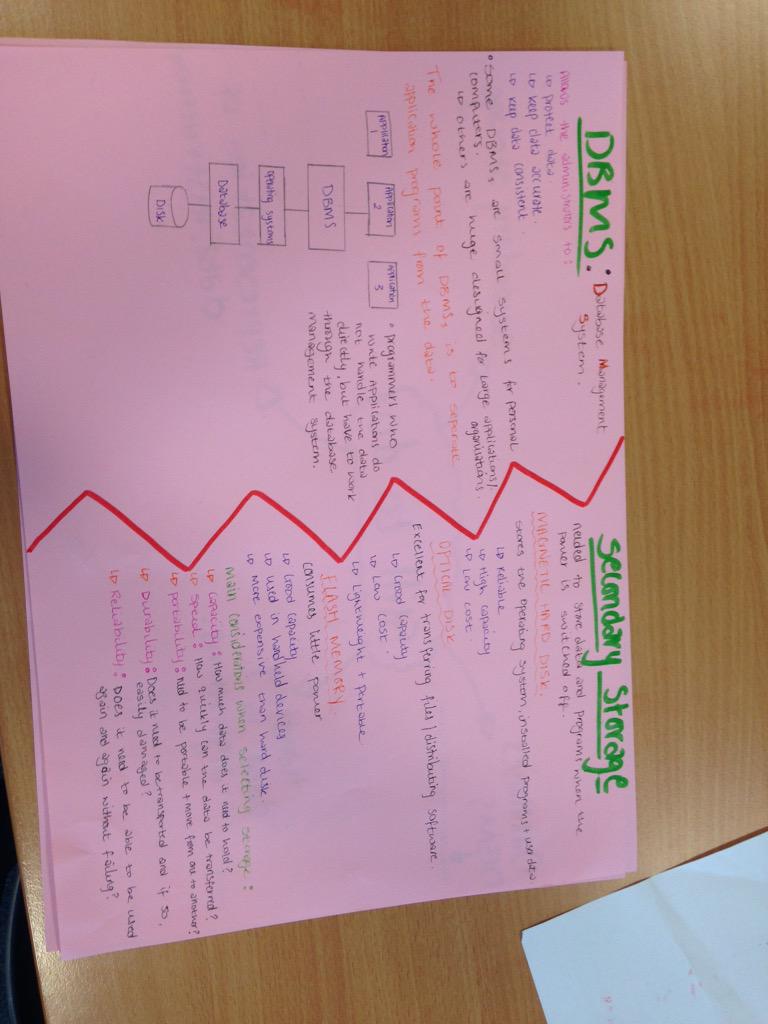 DBMS: Database Management
System.
Allows the administrators to:
↳ protect data
↳ keep data accurate.
↳ keep data consistent.
• Some DBMSs are small systems for personal
computers.
↳ others are huge designed for large applications/
organisations.
The whole point of DBMSs is to separate
application programs from the data.
Application
1
Application
2
Application
3
DBMS
Operating systems
Database
Disk
• programmers who
write applications do
not handle the data
directly, but have to work
through the database
management system.
Secondary Storage
needed to store data and programs when the
power is switched off.
MAGNETIC HARD DISK.
stores the operating system, installed programs + user data
↳ Reliable
↳ High capacity
↳ Low cost.
OPTICAL DISK
Excellent for transferring files/distributing software.
↳ Good capacity
↳ Low cost.
↳ Lightweight + portable
FLASH MEMORY.
consumes little power
↳ Good capacity
↳ used in handheld devices
↳ more expensive than hard disk.
main considerations when selecting storage:
↳ capacity: How much data does it need to hold?
↳ Speed: How quickly can the data be transferred?
↳ portability: need to be portable + move from one to another?
↳ Durability: Does it need to be transported and if so,
easily damaged?
↳ Reliability: Does it need to be able to be used
again and again without failing?